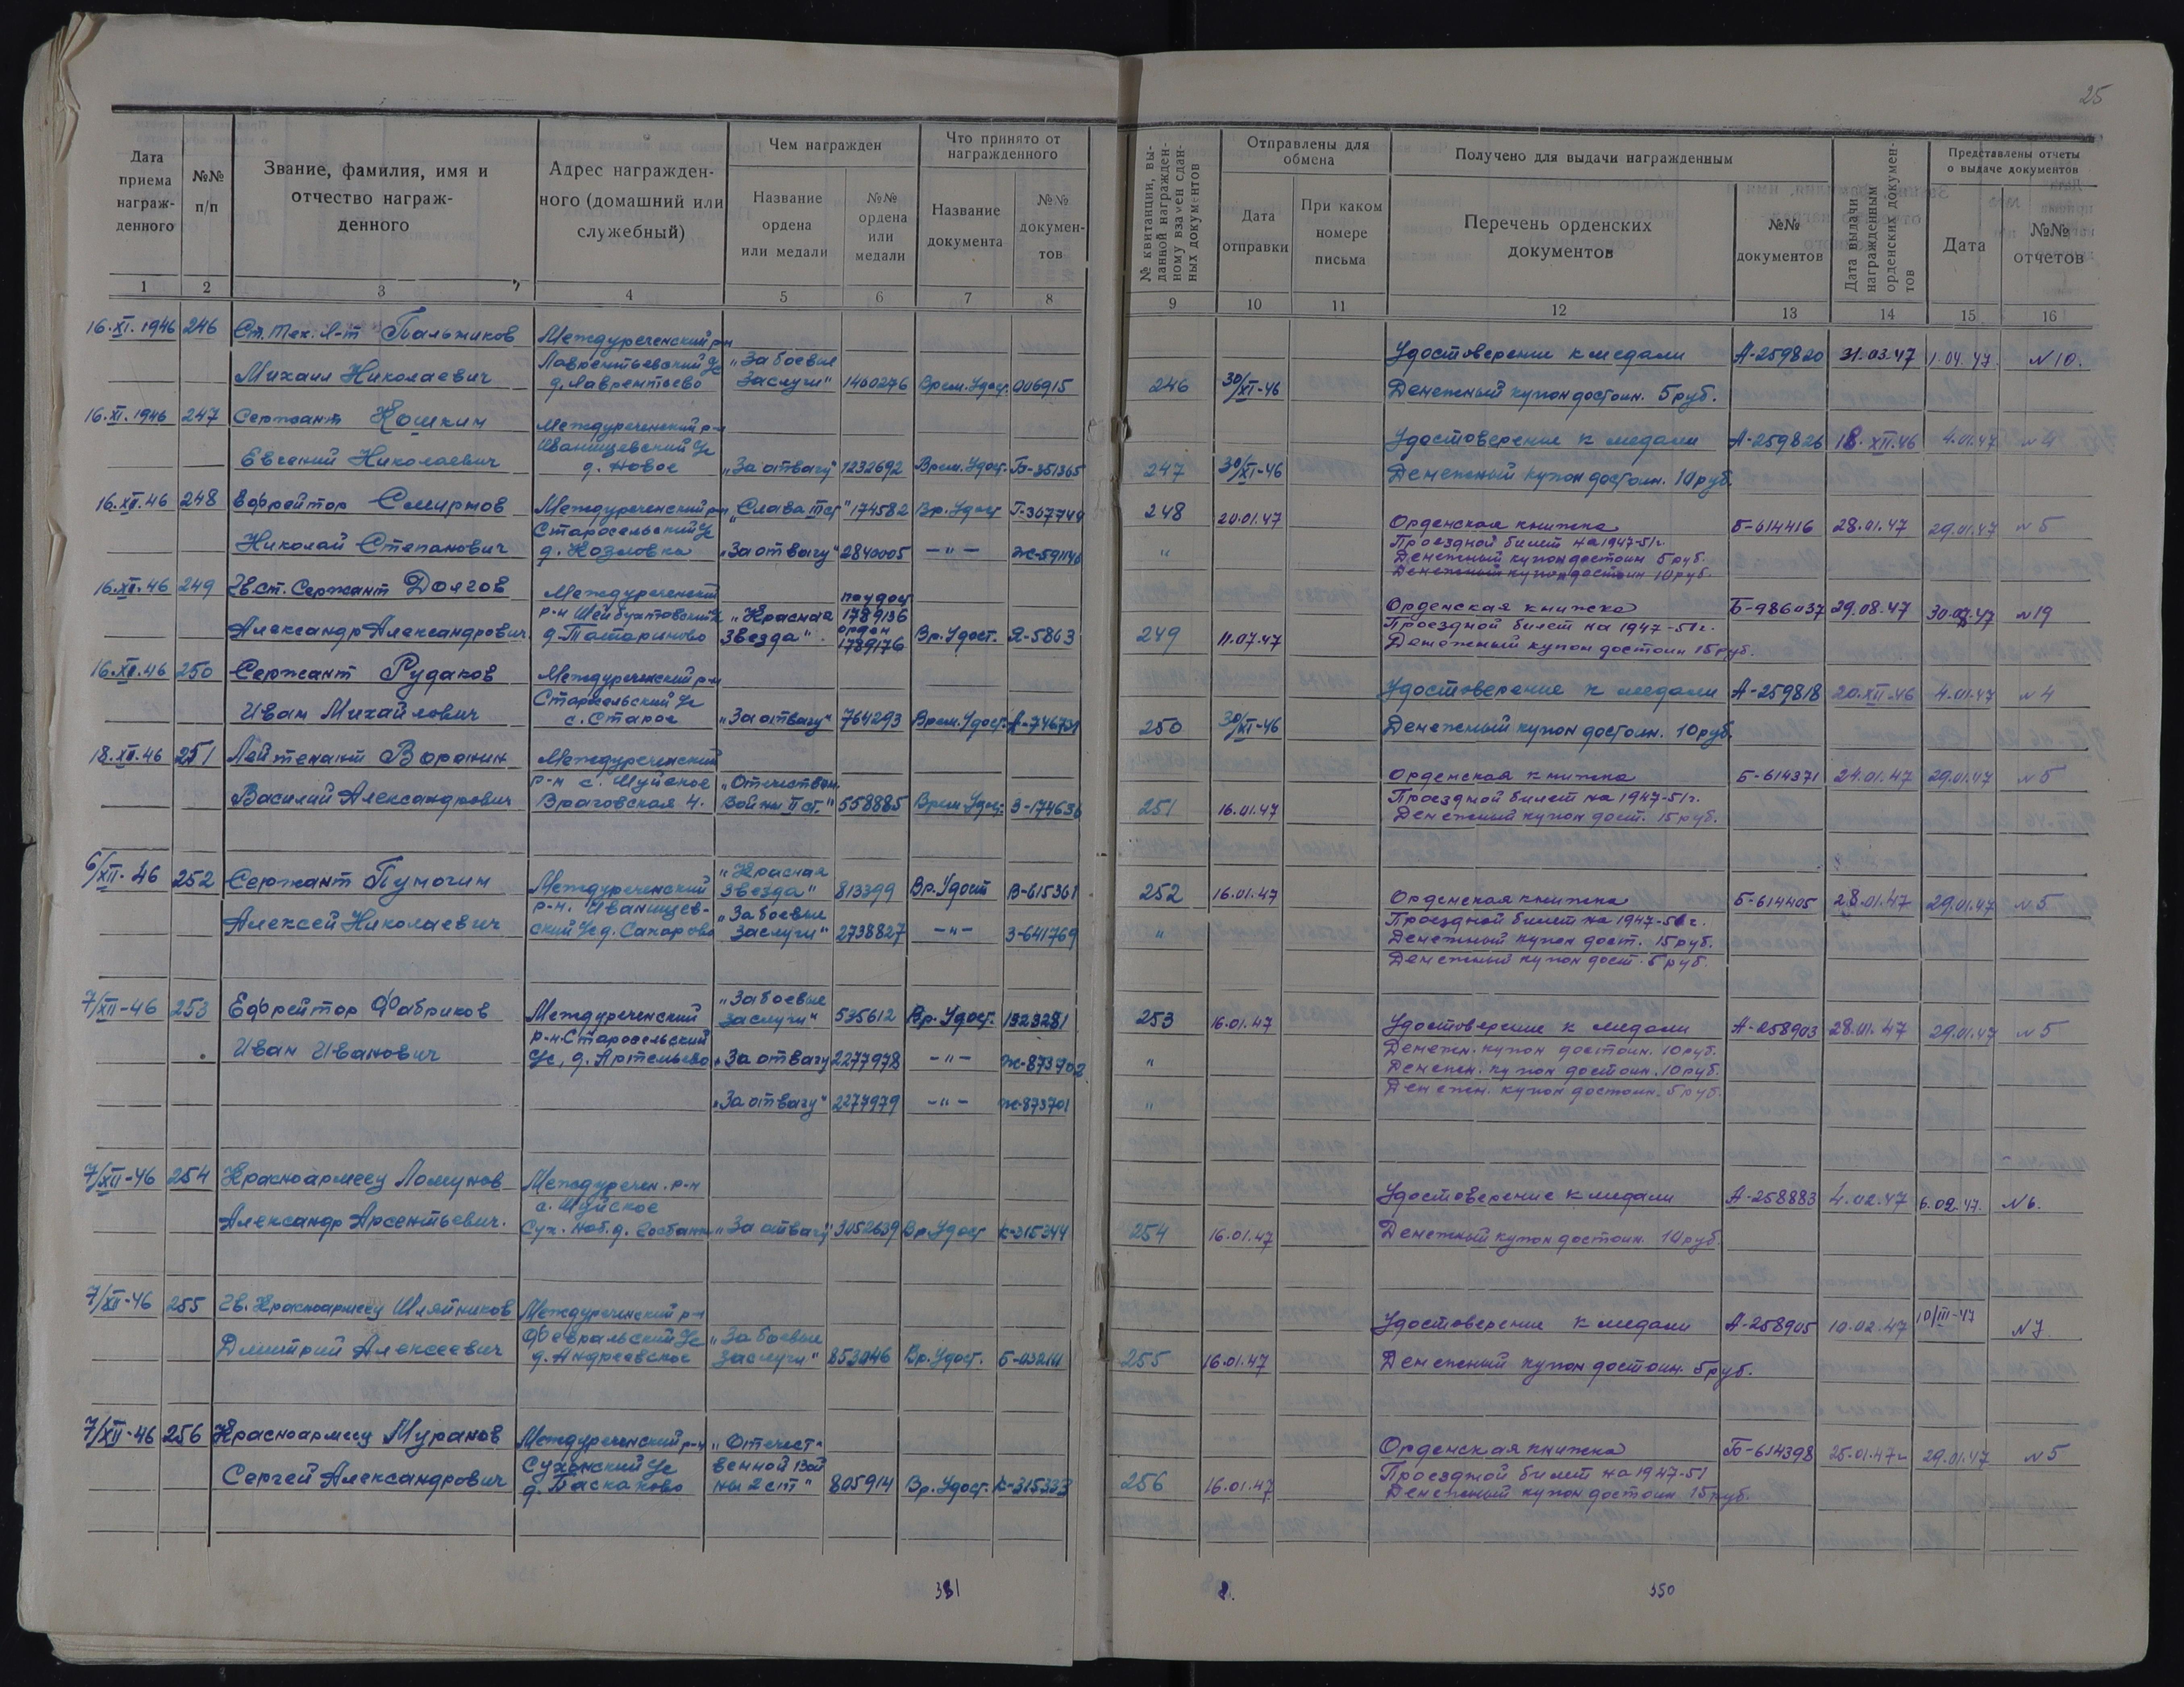 25
Дата приема награжденного
№№ п/п
Звание, фамилия, имя и отчество награжденного
Адрес награжденного (домашний или служебный)
Чем награжден
Название ордена или медали
№№ ордена или медали
Что принято от награжденного
Название документа
№№ документов
№ квитанции, выданной награжденному взамен сданных документов
Отправлены для обмена
Дата отправки
При каком номере письма
Получено для выдачи награжденным
Перечень орденских документов
№№ документов
Дата выдачи награжденным орденских документов
Представлены отчеты о выдаче документов
Дата
№№ отчетов
1 2 3 4 5 6 7 8 9 10 11 12 13 14 15 16
16.XI.1946 246 Ст. тех. л-т Пальжиков Междуреченский р-н
Лаврентьевский "За боевые Удостоверение к медали А-259820 31.03.47 1.04.47 N 10.
Михаил Николаевич д. Лаврентьево Заслуги" 1400276 Врем. Удост. 006915 246 30/XI-46 Денежный купон достоин. 5 руб.
16.XI.1946 247 Сержант Кошкин Междуреченский р-н
Иванищевский Удостоверение к медали А-259826 18.XII.46 4.01.47 N 4
Евгений Николаевич д. Новое "За отвагу" 1232692 Врем. Удост. Б-351365 247 30/XI-46 Денежный купон достоин. 10 руб.
16.XII.46 248 Ефрейтор Смирнов Междуреченский р-н "Слава III ст" 174582 Вр. Удост Г-367744 248 20.01.47
Старосельский Орденская книжка Б-614416 28.01.47 29.01.47 N 5
Николай Степанович д. Козловка "За отвагу" 2840005 -"- Ж-591146 " Проездной билет на 1947-51 г.
Денежный купон достоин 5 руб.
Денежный купон достоин 10 руб.
16.XII.46 249 Гв. ст. Сержант Долгов Междуреченский по удост
р-н Шейбухтовский "Красная 1789136 Орденская книжка Б-986037 29.08.47 30.08.47 N 19
Александр Александрович д. Татариново Звезда" орден 1789176 Вр. Удост. Я-5863 249 11.07.47 Проездной билет на 1947-51 г.
Денежный купон достоин 15 руб.
16.XII.46 250 Сержант Рудаков Междуреченский р-н
Старосельский Удостоверение к медали А-259818 20.XII.46 4.01.47 N 4
Иван Михайлович с. Старое "За отвагу" 764293 Врем. Удост. А-746731 250 30/XI-46 Денежный купон достоин. 10 руб.
18.XII.46 251 Лейтенант Воронин Междуреченский
р-н с. Шуйское "Отечествен. Орденская книжка Б-614371 24.01.47 29.01.47 N 5
Василий Александрович Враговская 4. Войны II ст." 558885 Врем. Удост. З-174636 251 16.01.47 Проездной билет на 1947-51 г.
Денежный купон дост. 15 руб.
6/XII-46 252 Сержант Пумочин Междуреченский "Красная Звезда" 813399 Вр. Удост В-615361 252 16.01.47 Орденская книжка Б-614405 28.01.47 29.01.47 N 5
р-н. Иванищев- "За боевые Проездной билет на 1947-51 г.
Алексей Николаевич ский д. Сахарово Заслуги" 2738827 -"- З-641769 " Денежный купон дост. 15 руб.
Денежный купон дост. 5 руб.
7/XII-46 253 Ефрейтор Фабриков Междуреченский "За боевые заслуги" 535612 Вр. Удост. 1323281 253 16.01.47 Удостоверение к медали А-258903 28.01.47 29.01.47 N 5
р-н Старосельский Денежн. купон достоин. 10 руб.
Иван Иванович д. Артельево "За отвагу 2277978 -"- Ж-873702 " Денежн. купон достоин. 10 руб.
"За отвагу" 2277979 -"- Ж-873701 " Денежн. купон достоин. 5 руб.
7/XII-46 254 Красноармеец Ломунов Междуречен. р-н
с. Шуйское Удостоверение к медали А-258883 4.02.47 6.02.47. N 6.
Александр Арсентьевич. Сух. наб. д. Госбанк "За отвагу" 3052639 Вр. Удост К-315344 254 16.01.47 Денежный купон достоин. 10 руб.
7/XII-46 255 Гв. Красноармеец Шляпников Междуреченский р-н
Февральский "За боевые Удостоверение к медали А-258905 10.02.47 10/III-47 N 7.
Дмитрий Алексеевич д. Андреевское заслуги" 853046 Вр. Удост. 255 16.01.47 Денежный купон достоин. 5 руб.
7/XII-46 256 Красноармеец Муранов Междуреченский р-н "Отечест- Орденская книжка Б-614398 25.01.47 г 29.01.47 N 5
Сухонский венной Вой Проездной билет на 1947-51
Сергей Александрович д. Баскаково ны 2 ст" 805914 Вр. Удост. К-315333 256 16.01.47 Денежный купон достоин. 15 руб.
331 8. 350